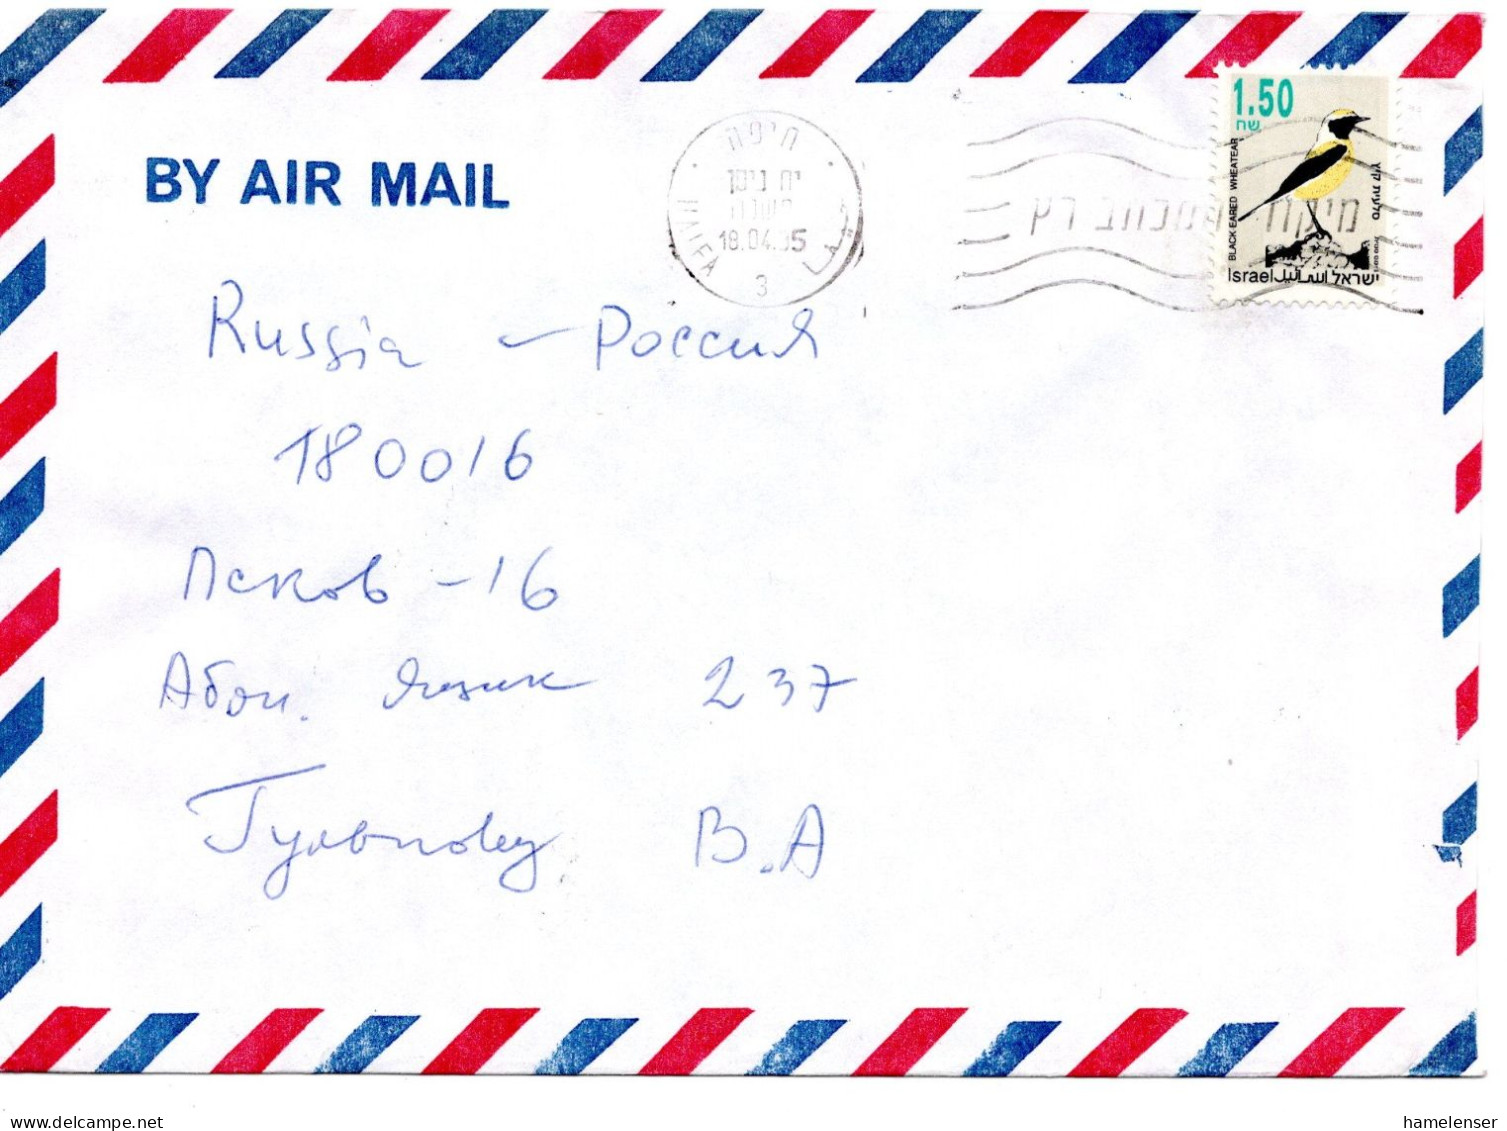 BY AIR MAIL
חיפה
יח ניסן
תשנה
18.04.95
HAIFA
3
מיקוד מכתב רץ
1.50
שח
BLACK-EARED WHEATEAR
סלעית קיץ
Israel اسرائيل ישראל
Russia – Россия
180016
Псков – 16
Абон. ящик 237
В.А
delcampe.net
hamelenser